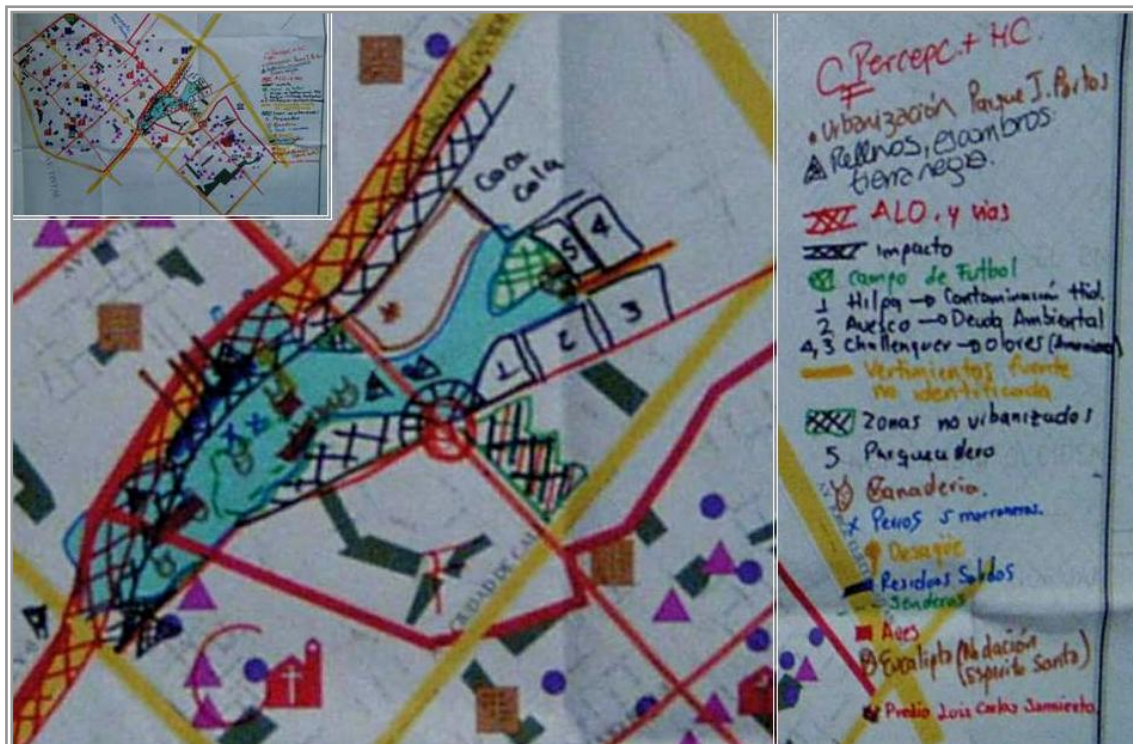 Coca
Cola
5 4
3
2
1
CIUDAD DE CAL
Percepc. + HC.
Urbanización Parque I. Portos
Rellenos, escombros
tierra negra.
ALO. y vias
Impacto
campo de Futbol
1 Hilpa → Contaminación Hid.
2 Avesco → Deuda Ambiental
4, 3 Challenguer → Olores
Vertimientos fuente
no identificada
Zonas no urbanizados
5 Parqueadero
Ganaderia.
x Perros 5 marraneras.
Desagüe
Residuos Solidos
Senderos
Aves
Eucalipto (Nodación
Espiritu Santo)
Predio Luis Carlos Sarmiento